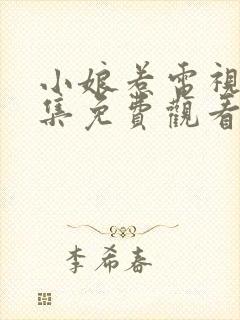 小娘惹電視
集免費觀看
李希春